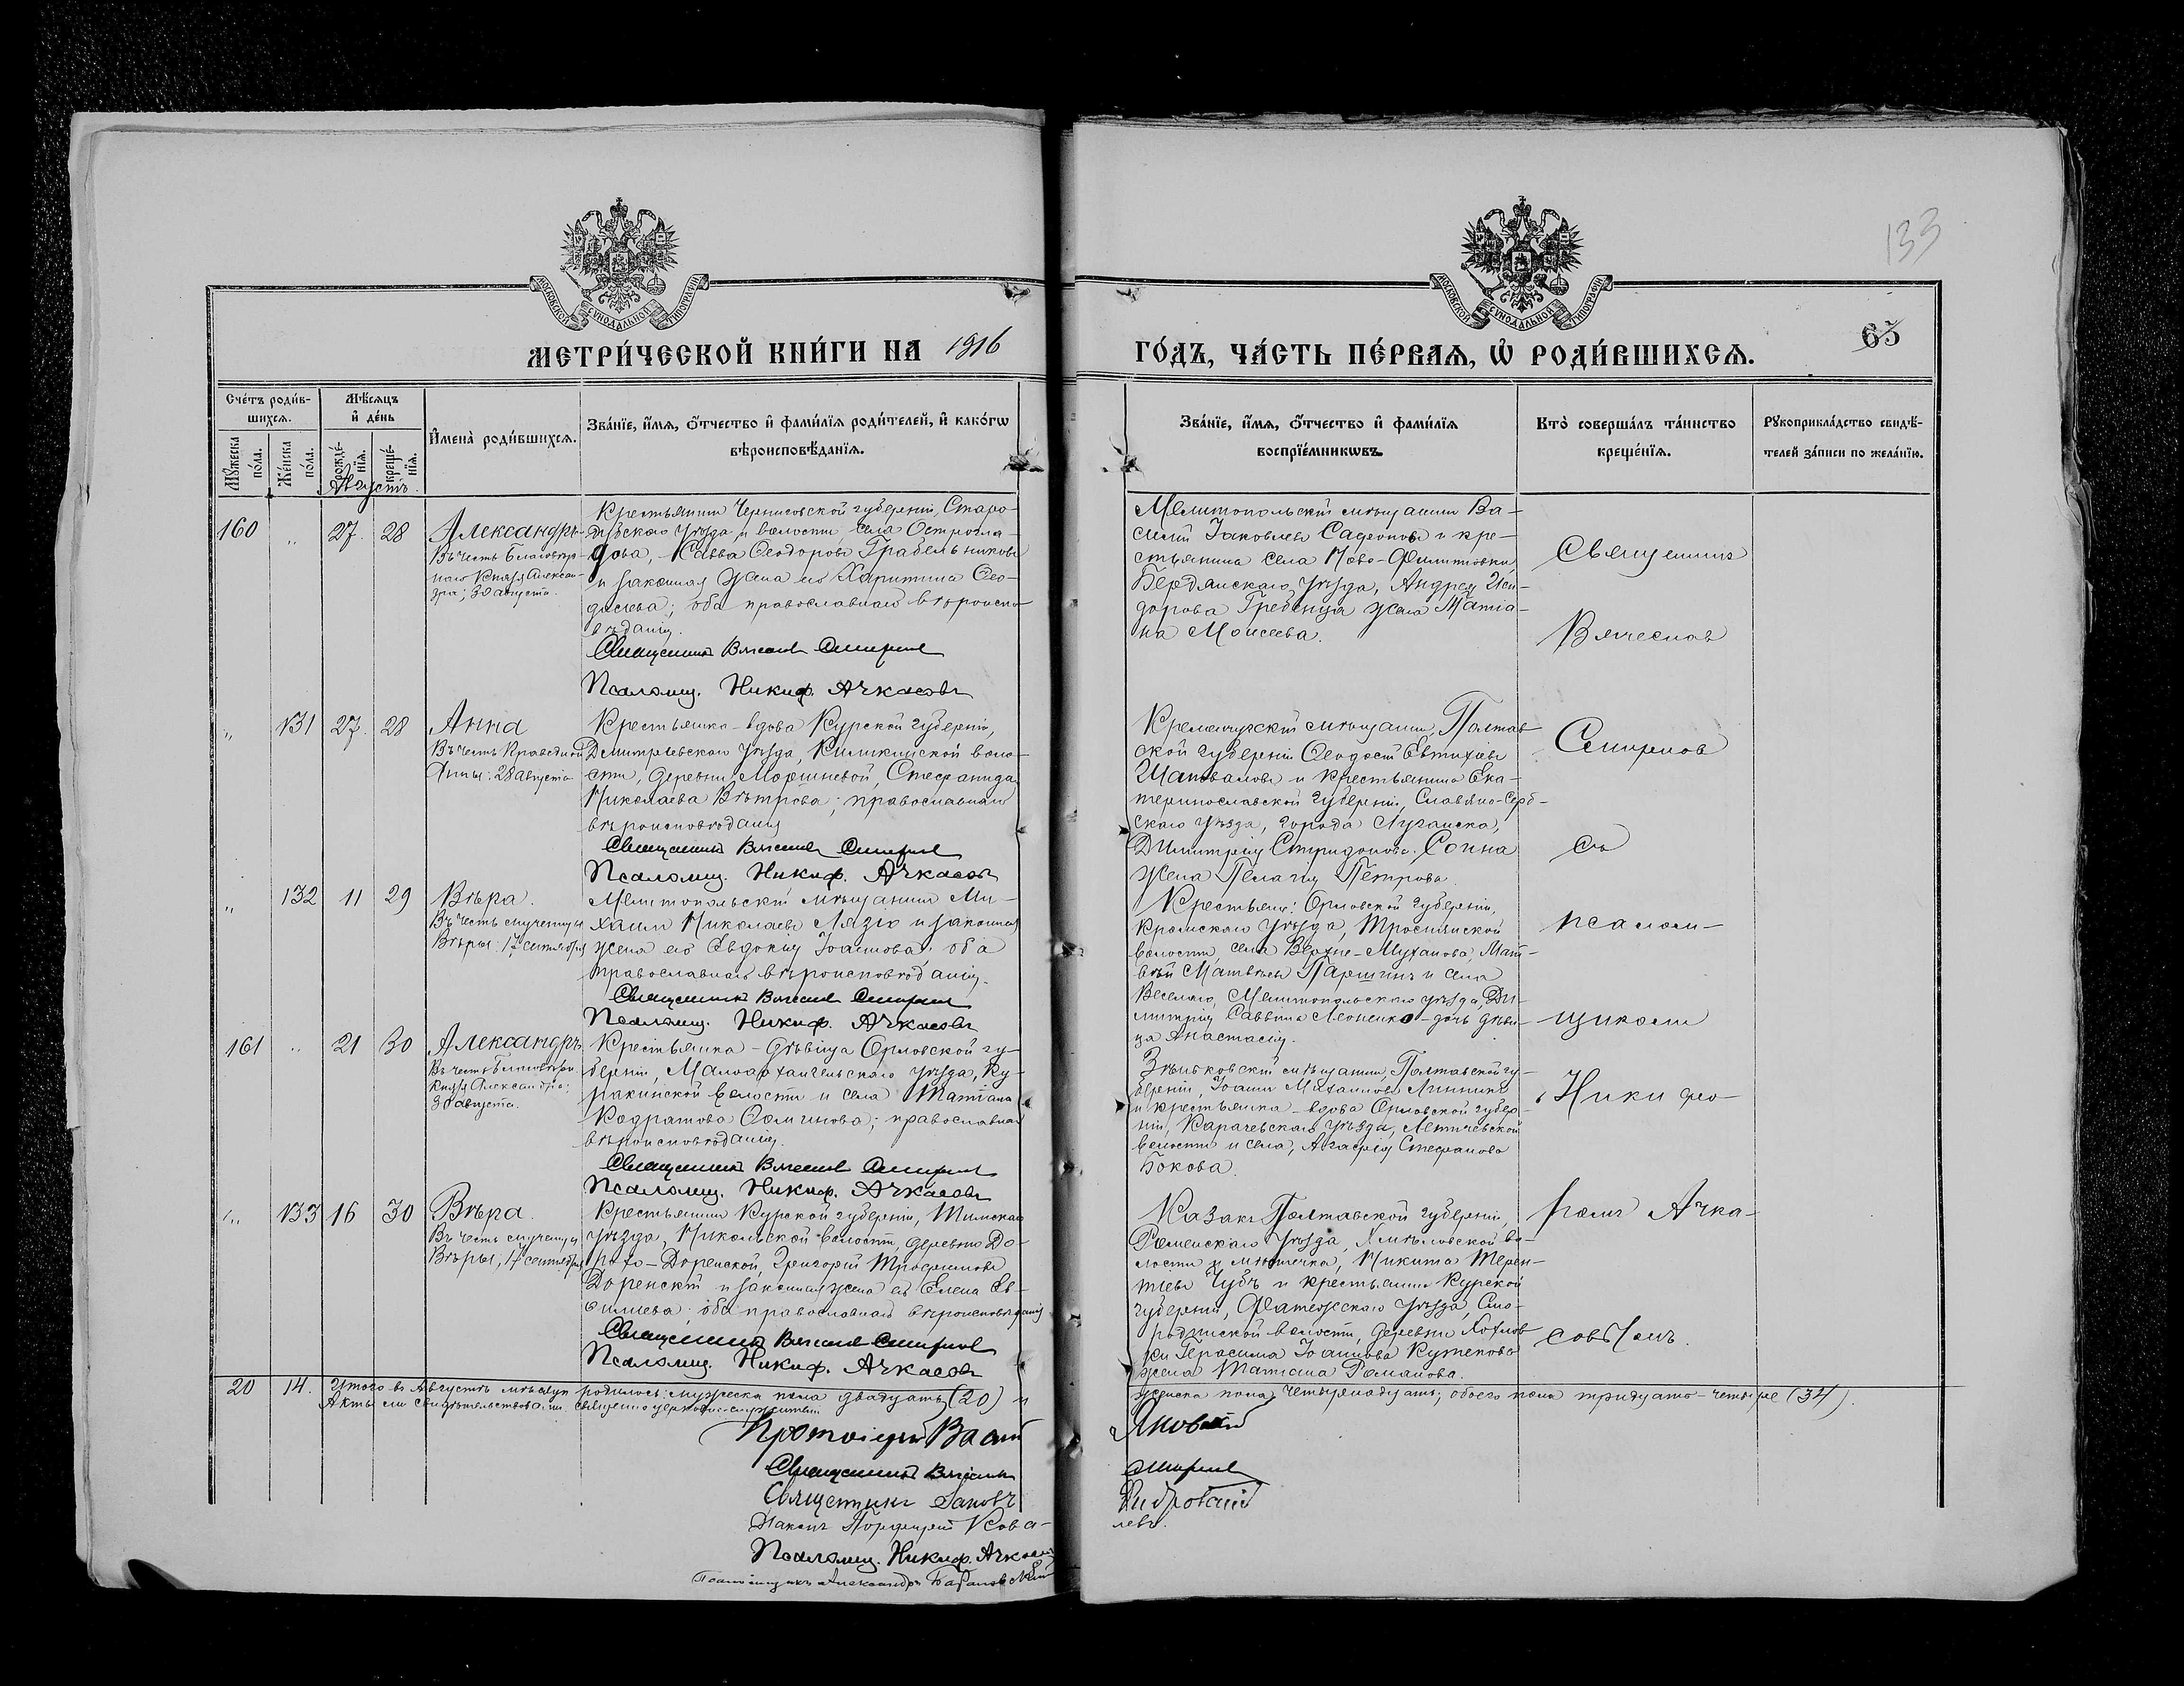 133
МОСКОВСКОЙ СѴНОДАЛЬНОЙ ТИПОГРАФІИ
МОСКОВСКОЙ СѴНОДАЛЬНОЙ ТИПОГРАФІИ
МЕТРИ́ЧЕСКОЙ КНИ́ГИ НА 1916
ГО́ДЪ, ЧА́СТЬ ПЕ́РВАЯ, Ѡ РОДИ́ВШИХСѦ.
65
Сче́тъ роди́в-
шихсѧ.
Мꙋ́жеска по́ла.
Же́нска по́ла.
Мѣ́сѧцъ
и҆ де́нь
рожде́-нїѧ.
креще́-нїѧ.
И҆мена̀ роди́вшихсѧ.
Зва́нїе, и҆́мѧ, ѻ҆́тчество и҆ фами́лїѧ роди́телей, и҆ како́гѡ
вѣроисповѣ́данїѧ.
Зва́нїе, и҆́мѧ, ѻ҆́тчество и҆ фами́лїѧ
воспрїе́мникѡвъ.
Кто̀ соверша́лъ та́инство
креще́нїѧ.
Рꙋкоприкла́дство свидѣ́-
телей за́писи по жела́нїю.
Августъ.
160 " 27. 28 Александръ
Въ честь Благовѣр-
наго Князя Алексан-
дра; 30 августа.
Крестьянинъ Черниговской губерніи, Старо-
дубскаго уѣзда и волости, села Острогля-
дова, Савва Ѳеодоровъ Грабельниковъ
и законная жена его Харитина Ѳео-
досіева; оба православнаго вѣроиспо-
вѣданія.
Священникъ Вячеславъ Смирновъ
Псаломщ. Никиф. Ачкасовъ
Мелитопольскій мѣщанинъ Ва-
силій Іаковлевъ и кре-
стьянина села Ново-Филипповки,
Бердянскаго уѣзда, Андрея Иси-
дорова Гребенца жена Татіа-
на Моисеева.
" 131 27. 28 Анна
Въ честь Праведной
Анны: 28 августа
Крестьянка-вдова Курской губерніи,
Дмитріевскаго уѣзда, воло-
сти, деревни Моршневой, Стефанида
Николаева Вѣтрова; православнаго
вѣроисповѣданія
Священникъ Вячеславъ Смирновъ
Псаломщ. Никиф. Ачкасовъ
Кременчугскій мѣщанинъ, Полтав-
ской губерніи Ѳеодосій Евтихіевъ
Шаповаловъ и крестьянина Ека-
теринославской губерніи, Славяно-Серб-
скаго уѣзда, города Луганска,
Димитрія Спиридонова Сопина
жена Пелагія Петрова.
" 132 11 29 Вѣра.
Въ честь мученицы
Вѣры: 17 сентября
Мелитопольскій мѣщанинъ Ми-
хаилъ Николаевъ и законная
жена его Евдокія Іоаннова; оба
православнаго вѣроисповѣданія.
Священникъ Вячеславъ Смирновъ
Псаломщ. Никиф. Ачкасовъ
Крестьяне: Орловской губерніи,
Кромскаго уѣзда,
волости, села Верхне-Муханова, Мат-
вѣй Матвѣевъ Паршинъ и села
Веселаго, Мелитопольскаго уѣзда, Ди-
митрія Саввина Леоненко-дочь дѣви-
ца Анастасія.
161 " 21 30 Александръ
Въ честь Благовѣрн.
Князя Александра:
30 августа.
Крестьянка-дѣвица Орловской гу-
берніи, Малоархангельскаго уѣзда, Ку-
ракинской волости и села Татіана
Кодратова Ѳоминова; православнаго
вѣроисповѣданія.
Священникъ Вячеславъ Смирновъ
Псаломщ. Никиф. Ачкасовъ
Зѣньковскій мѣщанинъ, Полтавской гу-
берніи, Іоаннъ Михаиловъ Линникъ
и крестьянка-вдова Орловской губер-
ніи, Карачевскаго уѣзда,
волости и села, Агафія Стефанова
Бокова.
" 133 16 30 Вѣра.
Въ честь мученицы
Вѣры; 17 сентября
Крестьянинъ Курской губерніи, Тимскаго
уѣзда, Никольской волости, деревни До-
рого-Доренской, Григорій Трофимовъ
Доренскій и законная жена его Елена Ев-
; оба православнаго вѣроисповѣданія
Священникъ Вячеславъ Смирновъ
Псаломщ. Никиф. Ачкасовъ
Казакъ Полтавской губерніи,
Роменскаго уѣзда, Хмѣловской во-
лости и мѣстечка, Никита Терен-
тіевъ Чубъ и крестьянина Курской
губерніи, Фатежскаго уѣзда, Смо-
родинской волости, деревни Хотлов-
ки Герасима Іоаннова Кутепова
жена Татіана Романова.
Священникъ
Вячеславъ
Смирновъ
съ
псалом-
щикомъ
Никифо-
ромъ Ачка-
совымъ.
20 14. Итого въ Августѣ мѣсяцѣ родилось: мужеска пола двадцать (20) и
женска пола четырнадцать; обоего пола тридцать-четыре (34).
Акты сіи свидѣтельствовали священно-церковно-служители:
Протоіерей Василій
Яновскій
Священникъ Вячеславъ
Смирновъ
Священникъ Іаковъ
Діаконъ Порфирій Кова-
левъ.
Псаломщ. Никиф. Ачкасовъ
Псаломщикъ Александръ Барановскій